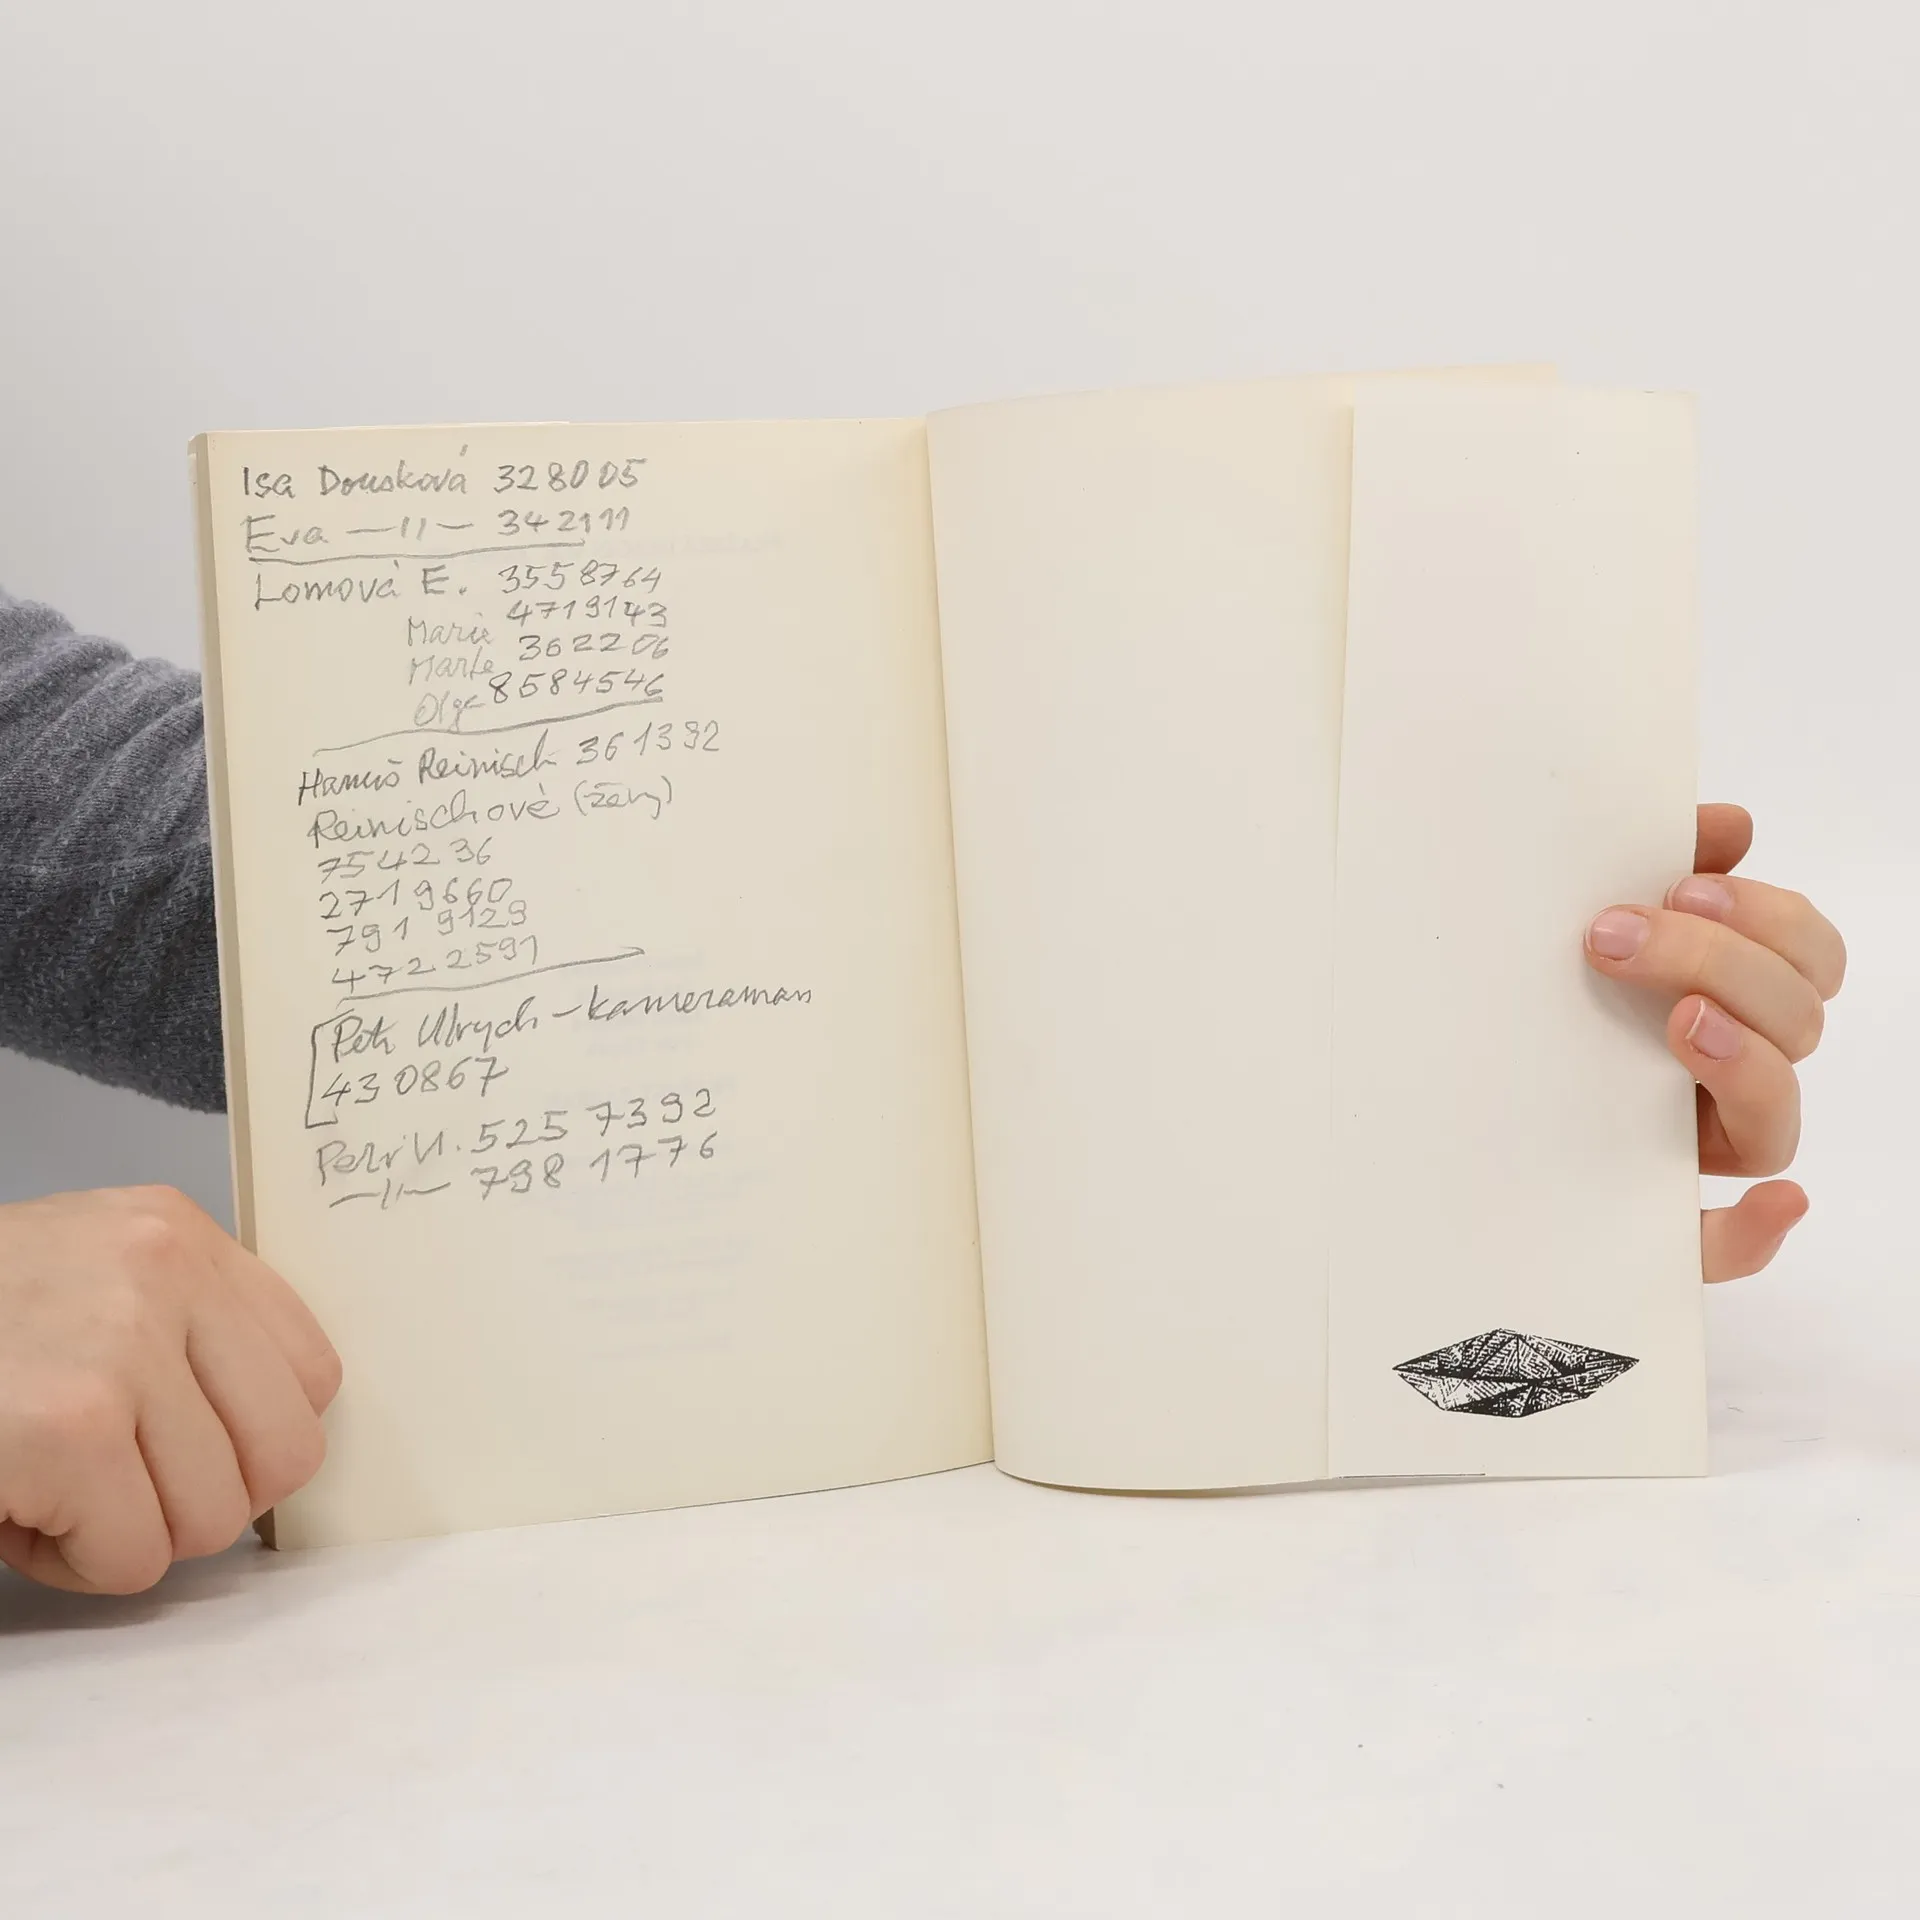 Isa Dousková 328005
Eva —11— 342111
Lomová E. 3558764
Marie 4719143
Marta 362206
Olga 8584546
Hanuš Reinisch 361392
Reinischové (ženy)
7542 36
2719660
791 9129
4722591
Petr Ulrych - kameraman
430867
Petr U. 525 7392
—11— 798 1776